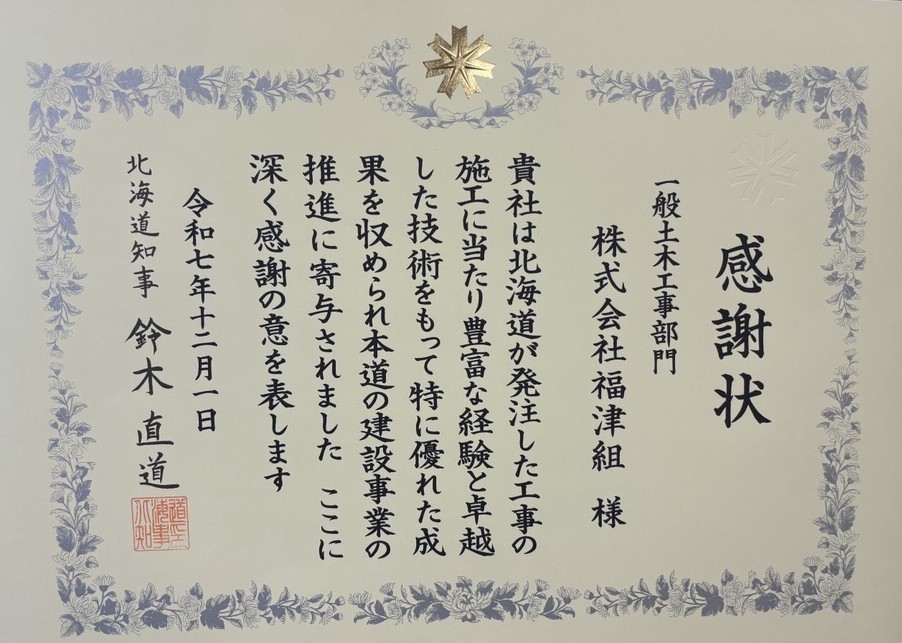 感謝状
一般土木工事部門
株式会社福津組 様
貴社は北海道が発注した工事の
施工に当たり豊富な経験と卓越
した技術をもって特に優れた成
果を収められ本道の建設事業の
推進に寄与されました ここに
深く感謝の意を表します
令和七年十二月一日
北海道知事 鈴木直道